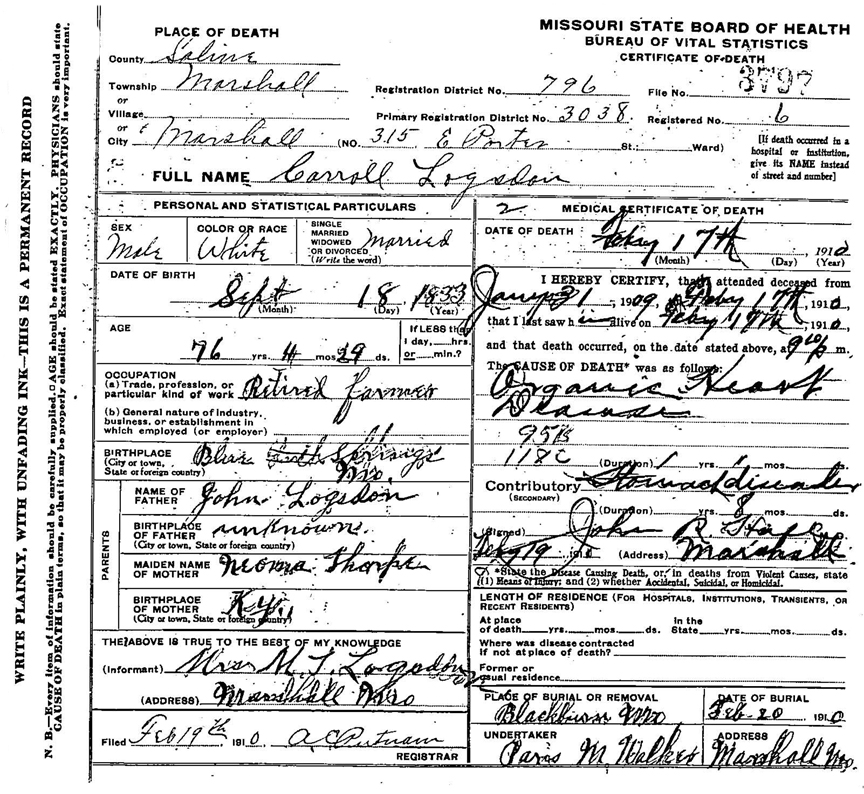 WRITE PLAINLY, WITH UNFADING INK—THIS IS A PERMANENT RECORD
N. B.—Every item of information should be carefully supplied. AGE should be stated EXACTLY. PHYSICIANS should state
CAUSE OF DEATH in plain terms, so that it may be properly classified. Exact statement of OCCUPATION is very important.
MISSOURI STATE BOARD OF HEALTH
BUREAU OF VITAL STATISTICS
CERTIFICATE OF DEATH
PLACE OF DEATH
County Saline
Township Marshall
or
Village
or
City Marshall (NO. 315 E Porter St.; Ward)
Registration District No. 796 File No. 3797
Primary Registration District No. 3038 Registered No. 6
[If death occurred in a
hospital or institution,
give its NAME instead
of street and number]
FULL NAME Carroll Logsdon
PERSONAL AND STATISTICAL PARTICULARS
SEX
Male
COLOR OR RACE
White
SINGLE
MARRIED
WIDOWED
OR DIVORCED
(Write the word)
Married
DATE OF BIRTH
Sept 18 1833
(Month) (Day) (Year)
AGE
76 yrs. 4 mos. 29 ds.
If LESS than
1 day, hrs.
or min.?
OCCUPATION
(a) Trade, profession, or
particular kind of work Retired farmer
(b) General nature of industry,
business, or establishment in
which employed (or employer)
BIRTHPLACE
(City or town,
State or foreign country)
Blue Springs
Mo.
PARENTS
NAME OF
FATHER John Logsdon
BIRTHPLACE
OF FATHER unknown
(City or town, State or foreign country)
MAIDEN NAME
OF MOTHER Neoma Tharpe
BIRTHPLACE
OF MOTHER Ky.
(City or town, State or foreign country)
THE ABOVE IS TRUE TO THE BEST OF MY KNOWLEDGE
(Informant) Mrs M. J. Logsdon
(ADDRESS) Marshall Mo
Filed Feb 19th 1910 A C Putnam
REGISTRAR
2 MEDICAL CERTIFICATE OF DEATH
DATE OF DEATH Feby 17th 1910
(Month) (Day) (Year)
I HEREBY CERTIFY, that I attended deceased from
Jany 31, 1909, to Feby 17th, 1910,
that I last saw him alive on Feby 17th, 1910,
and that death occurred, on the date stated above, at 9 m.
The CAUSE OF DEATH* was as follows:
Organic Heart
Disease
95B
118C
(Duration) yrs. mos. ds.
Contributory Stomach disorder
(SECONDARY)
(Duration) yrs. 8 mos. ds.
(Signed) John R Hall
Feby 19 1910 (Address) Marshall
*State the Disease Causing Death, or, in deaths from Violent Causes, state
(1) Means of Injury; and (2) whether Accidental, Suicidal, or Homicidal.
LENGTH OF RESIDENCE (FOR HOSPITALS, INSTITUTIONS, TRANSIENTS, OR
RECENT RESIDENTS)
At place of death yrs. mos. ds. In the State yrs. mos. ds.
Where was disease contracted
if not at place of death?
Former or
usual residence
PLACE OF BURIAL OR REMOVAL
Blackburn Mo
DATE OF BURIAL
Feb 20 1910
UNDERTAKER
Paris M. Walker
ADDRESS
Marshall Mo.